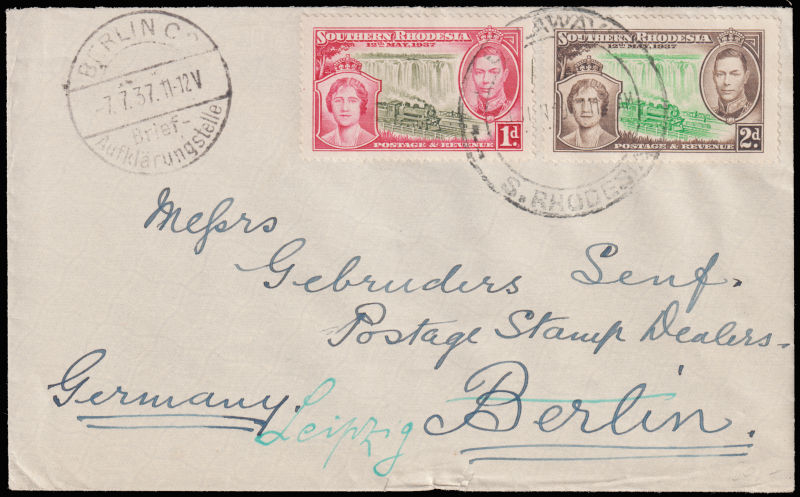 BERLIN C
-7.7.37.11-12V
Brief-
Aufklärungstelle
SOUTHERN RHODESIA
12TH MAY, 1937
1d
POSTAGE & REVENUE
SOUTHERN RHODESIA
12TH MAY, 1937
2d
POSTAGE & REVENUE
S. RHODESIA
Messrs
Gebruders Senf.
Postage Stamp Dealers.
Germany.
Leipzig
Berlin.